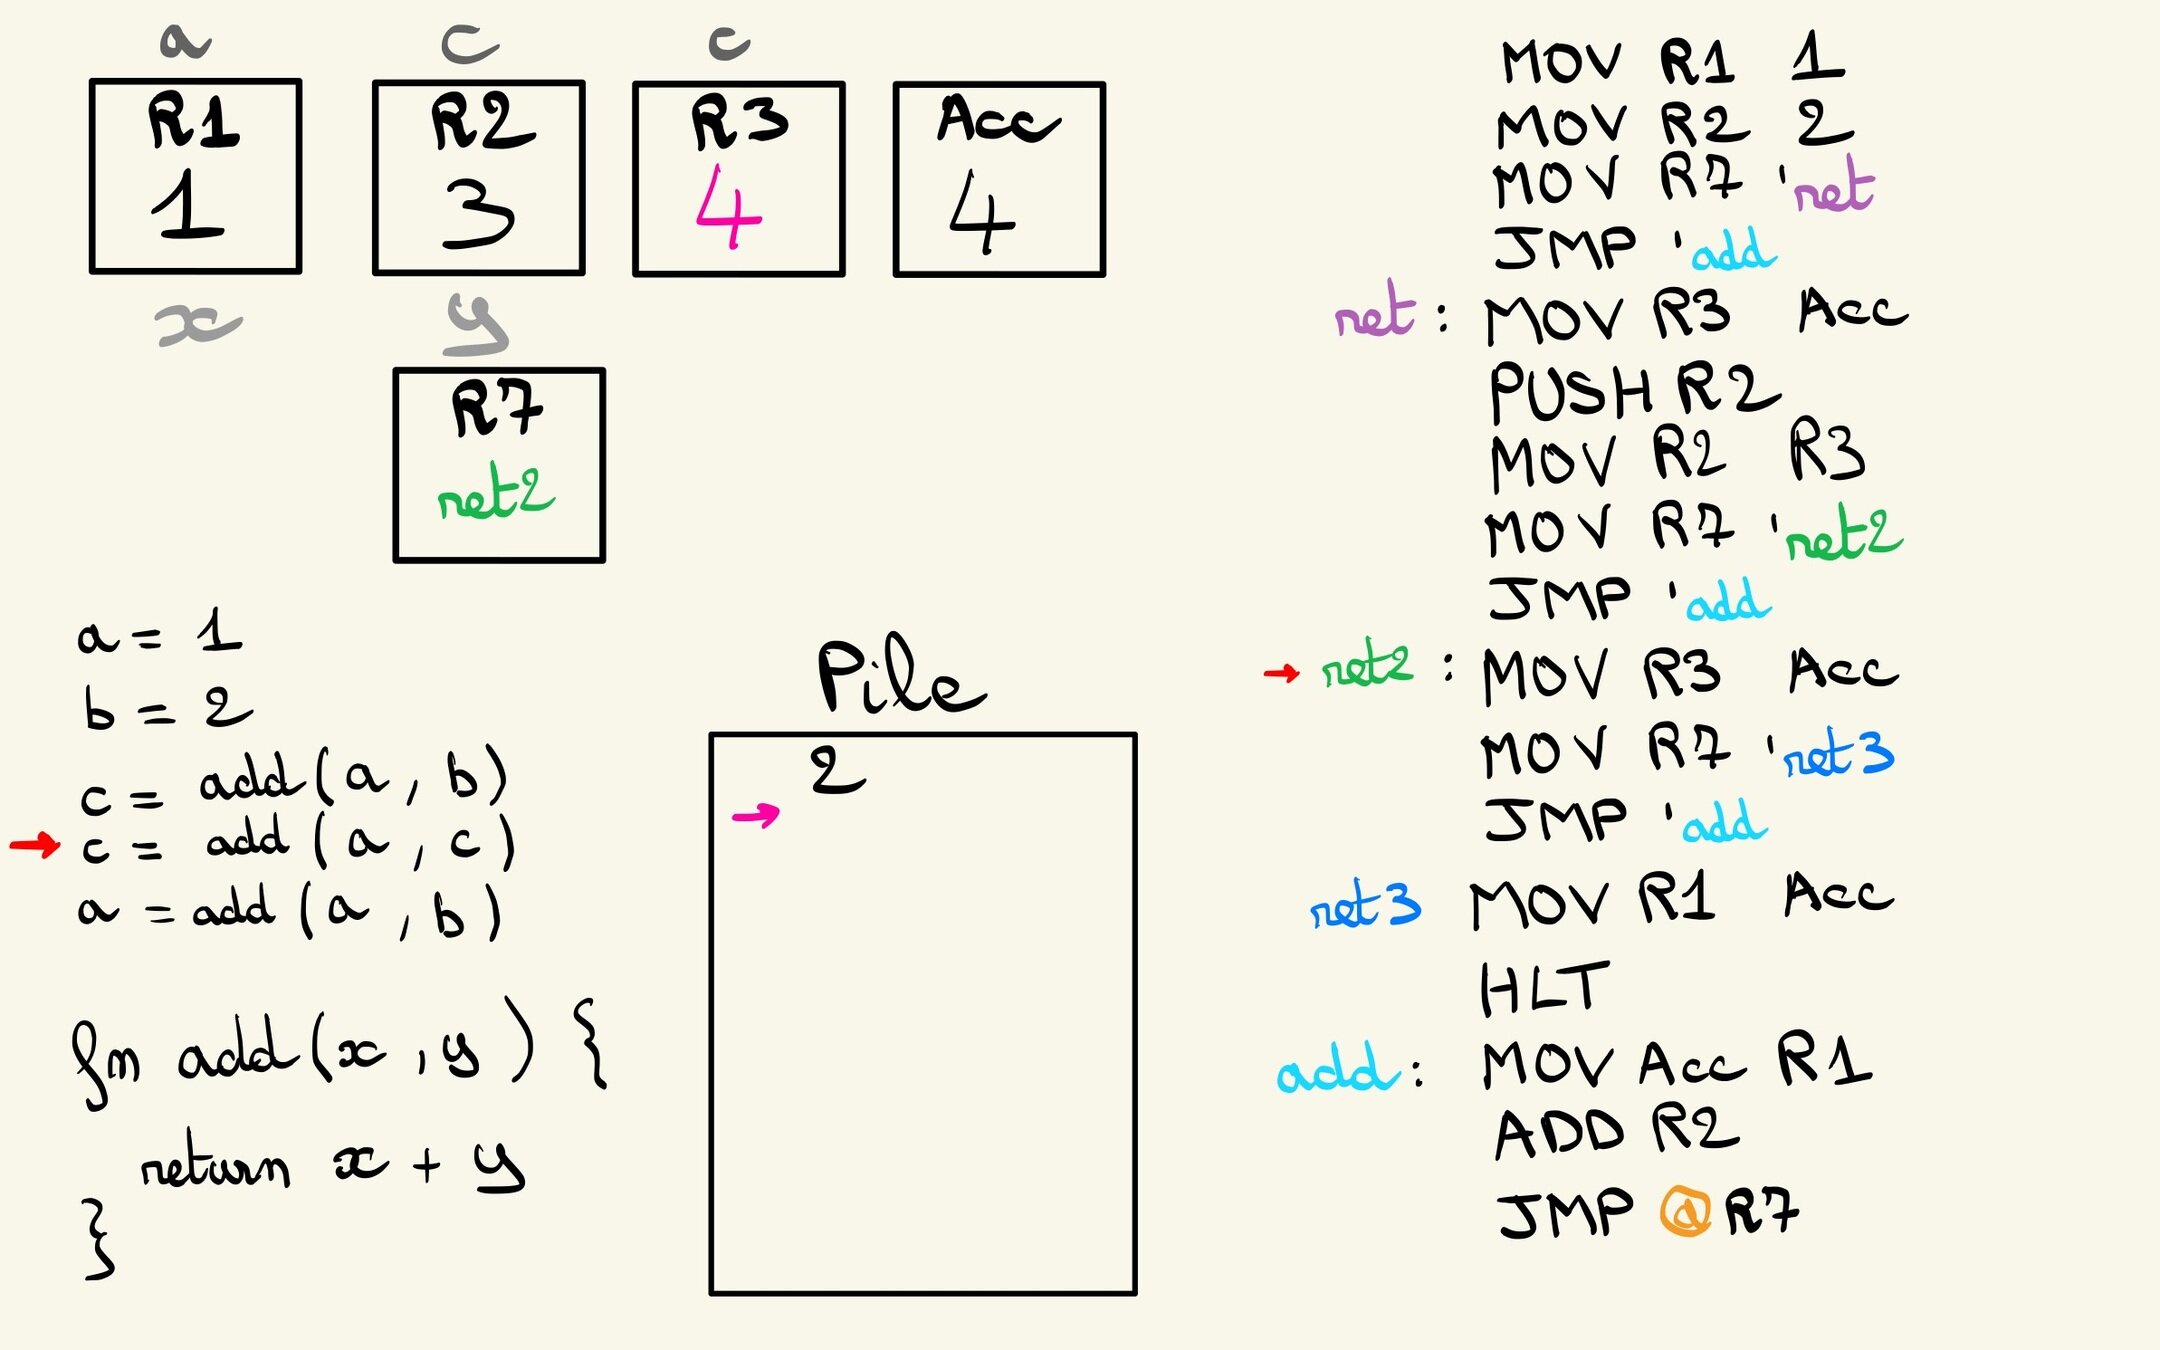 a c c
R1 R2 R3 Acc
1 3 4 4
x y
R7
ret2
a = 1
b = 2
c = add(a, b)
→ c = add (a, c)
a = add (a, b)
fn add(x, y) {
return x + y
}
Pile
2
→
MOV R1 1
MOV R2 2
MOV R7 'ret
JMP 'add
ret : MOV R3 Acc
PUSH R2
MOV R2 R3
MOV R7 'ret2
JMP 'add
→ ret2 : MOV R3 Acc
MOV R7 'ret3
JMP 'add
ret3 MOV R1 Acc
HLT
add : MOV Acc R1
ADD R2
JMP @ R7